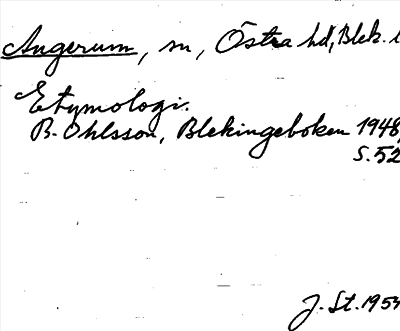 Augerum, sn, Östra hd, Blek. l
Etymologi.
B. Ohlsson, Blekingeboken 1948,
s. 52
J. St. 1954